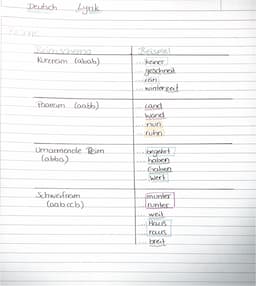 Deutsch Lyrik
Reimschema Beispiel
Kreuzreim (abab) ... keiner
... geschneit
... rein
... winterzeit
Paarreim (aabb) ... Land
... Wand
... nun
... ruhn
Umarmende Reim ... begehrt
(abba) ... haben
... Gaben
... Wert
Schweifreim ... munter
(aabccb) ... runter
... weit
... Haus
... raus
... breit